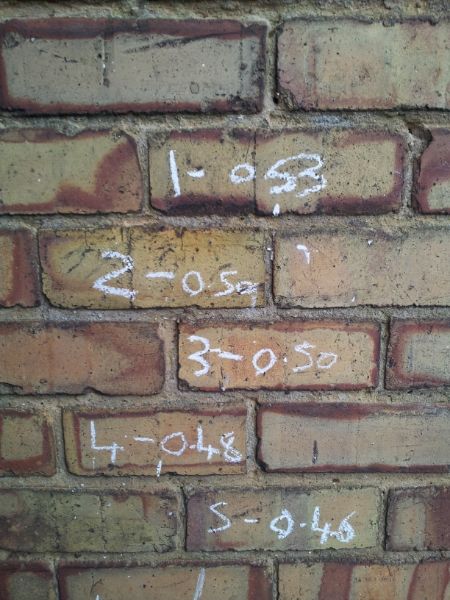 1-0.53
2-0.50
3-0.50
4-0.48
5-0.46